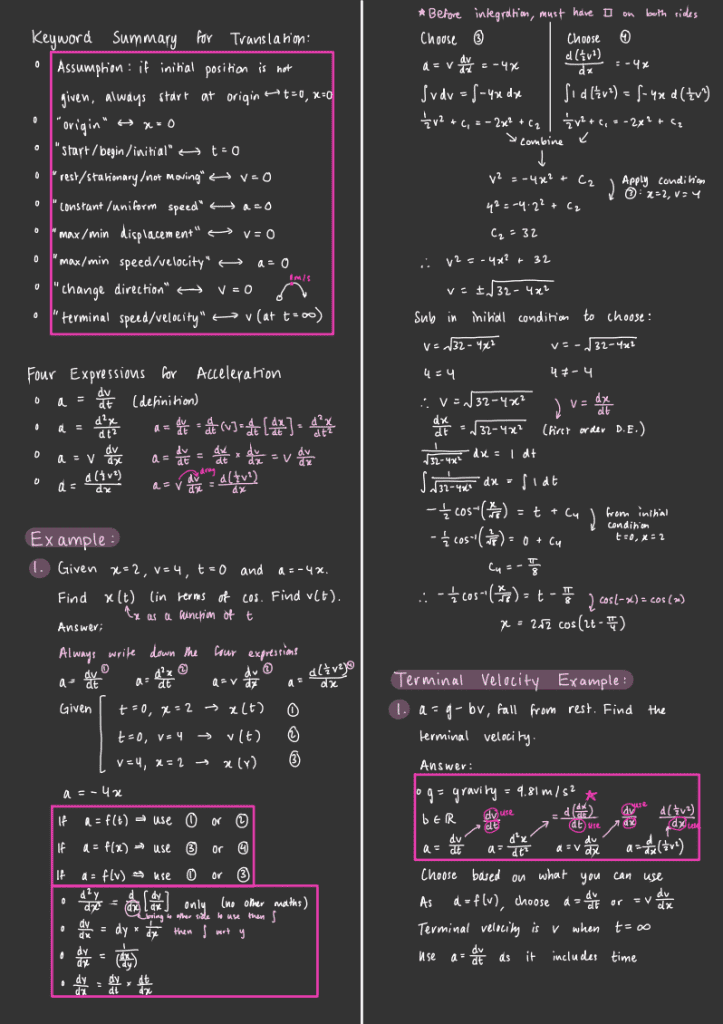 Keyword Summary for Translation:
• Assumption: if initial position is not
given, always start at origin ↔ t=0, x=0
• "origin" ↔ x = 0
• "start/begin/initial" ↔ t = 0
• "rest/stationary/not moving" ↔ v = 0
• "constant/uniform speed" ↔ a = 0
• "max/min displacement" ↔ v = 0
• "max/min speed/velocity" ↔ a = 0
• "change direction" ↔ v = 0 0m/s
• "terminal speed/velocity" ↔ v (at t = ∞)
Four Expressions for Acceleration
• a = dv/dt (definition)
• a = d²x/dt² a = dv/dt = d/dt (v) = d/dt [dx/dt] = d²x/dt²
• a = v dv/dx a = dv/dt = dx/dt × dv/dx = v dv/dx
• a = d(½v²)/dx a = v dv/dx = d(½v²)/dx
Example:
1. Given x=2, v=4, t=0 and a=-4x.
Find x(t) (in terms of cos. Find v(t).
x as a function of t
Answer:
Always write down the four expressions
a = dv/dt ① a = d²x/dt² ② a = v dv/dx ③ a = d(½v²)/dx ④
Given t=0, x=2 → x(t) ①
t=0, v=4 → v(t) ②
v=4, x=2 → x(v) ③
a = -4x
If a = f(t) ⇒ use ① or ②
If a = f(x) ⇒ use ③ or ④
If a = f(v) ⇒ use ① or ③
• d²y/dx² = d/dx [dy/dx] only (no other maths)
bring to other side to use then ∫
• dy/dx = dy × 1/dx then ∫ wrt y
• dy/dx = 1/(dx/dy)
• dy/dx = dy/dt × dt/dx
*Before integration, must have □ on both sides
Choose ③ Choose ④
a = v dv/dx = -4x d(½v²)/dx = -4x
∫v dv = ∫-4x dx ∫1 d(½v²) = ∫-4x d(½v²)
½v² + c₁ = -2x² + c₂ ½v² + c₁ = -2x² + c₂
combine
v² = -4x² + C₂ Apply condition
4² = -4·2² + C₂ ③: x=2, v=4
C₂ = 32
∴ v² = -4x² + 32
v = ±√32-4x²
Sub in initial condition to choose:
v = √32-4x² v = -√32-4x²
4 = 4 4 ≠ -4
∴ v = √32-4x² v = dx/dt
dx/dt = √32-4x² (first order D.E.)
1/√32-4x² dx = 1 dt
∫ 1/√32-4x² dx = ∫1 dt
-½cos⁻¹(x/√8) = t + C₄ from initial
condition
-½cos⁻¹(2/√8) = 0 + C₄ t=0, x=2
C₄ = -π/8
∴ -½cos⁻¹(x/√8) = t - π/8 cos(-x) = cos(x)
x = 2√2 cos(2t - π/4)
Terminal Velocity Example:
1. a = g - bv, fall from rest. Find the
terminal velocity.
Answer:
• g = gravity = 9.81 m/s² ★
b ∈ R dv/dt use = d(dx/dt)/dt use dv/dx use d(½v²)/dx use
a = dv/dt a = d²x/dt² a = v dv/dx a = d/dx(½v²)
Choose based on what you can use
As a = f(v), choose a = dv/dt or = v dv/dx
Terminal velocity is v when t = ∞
Use a = dv/dt as it includes time